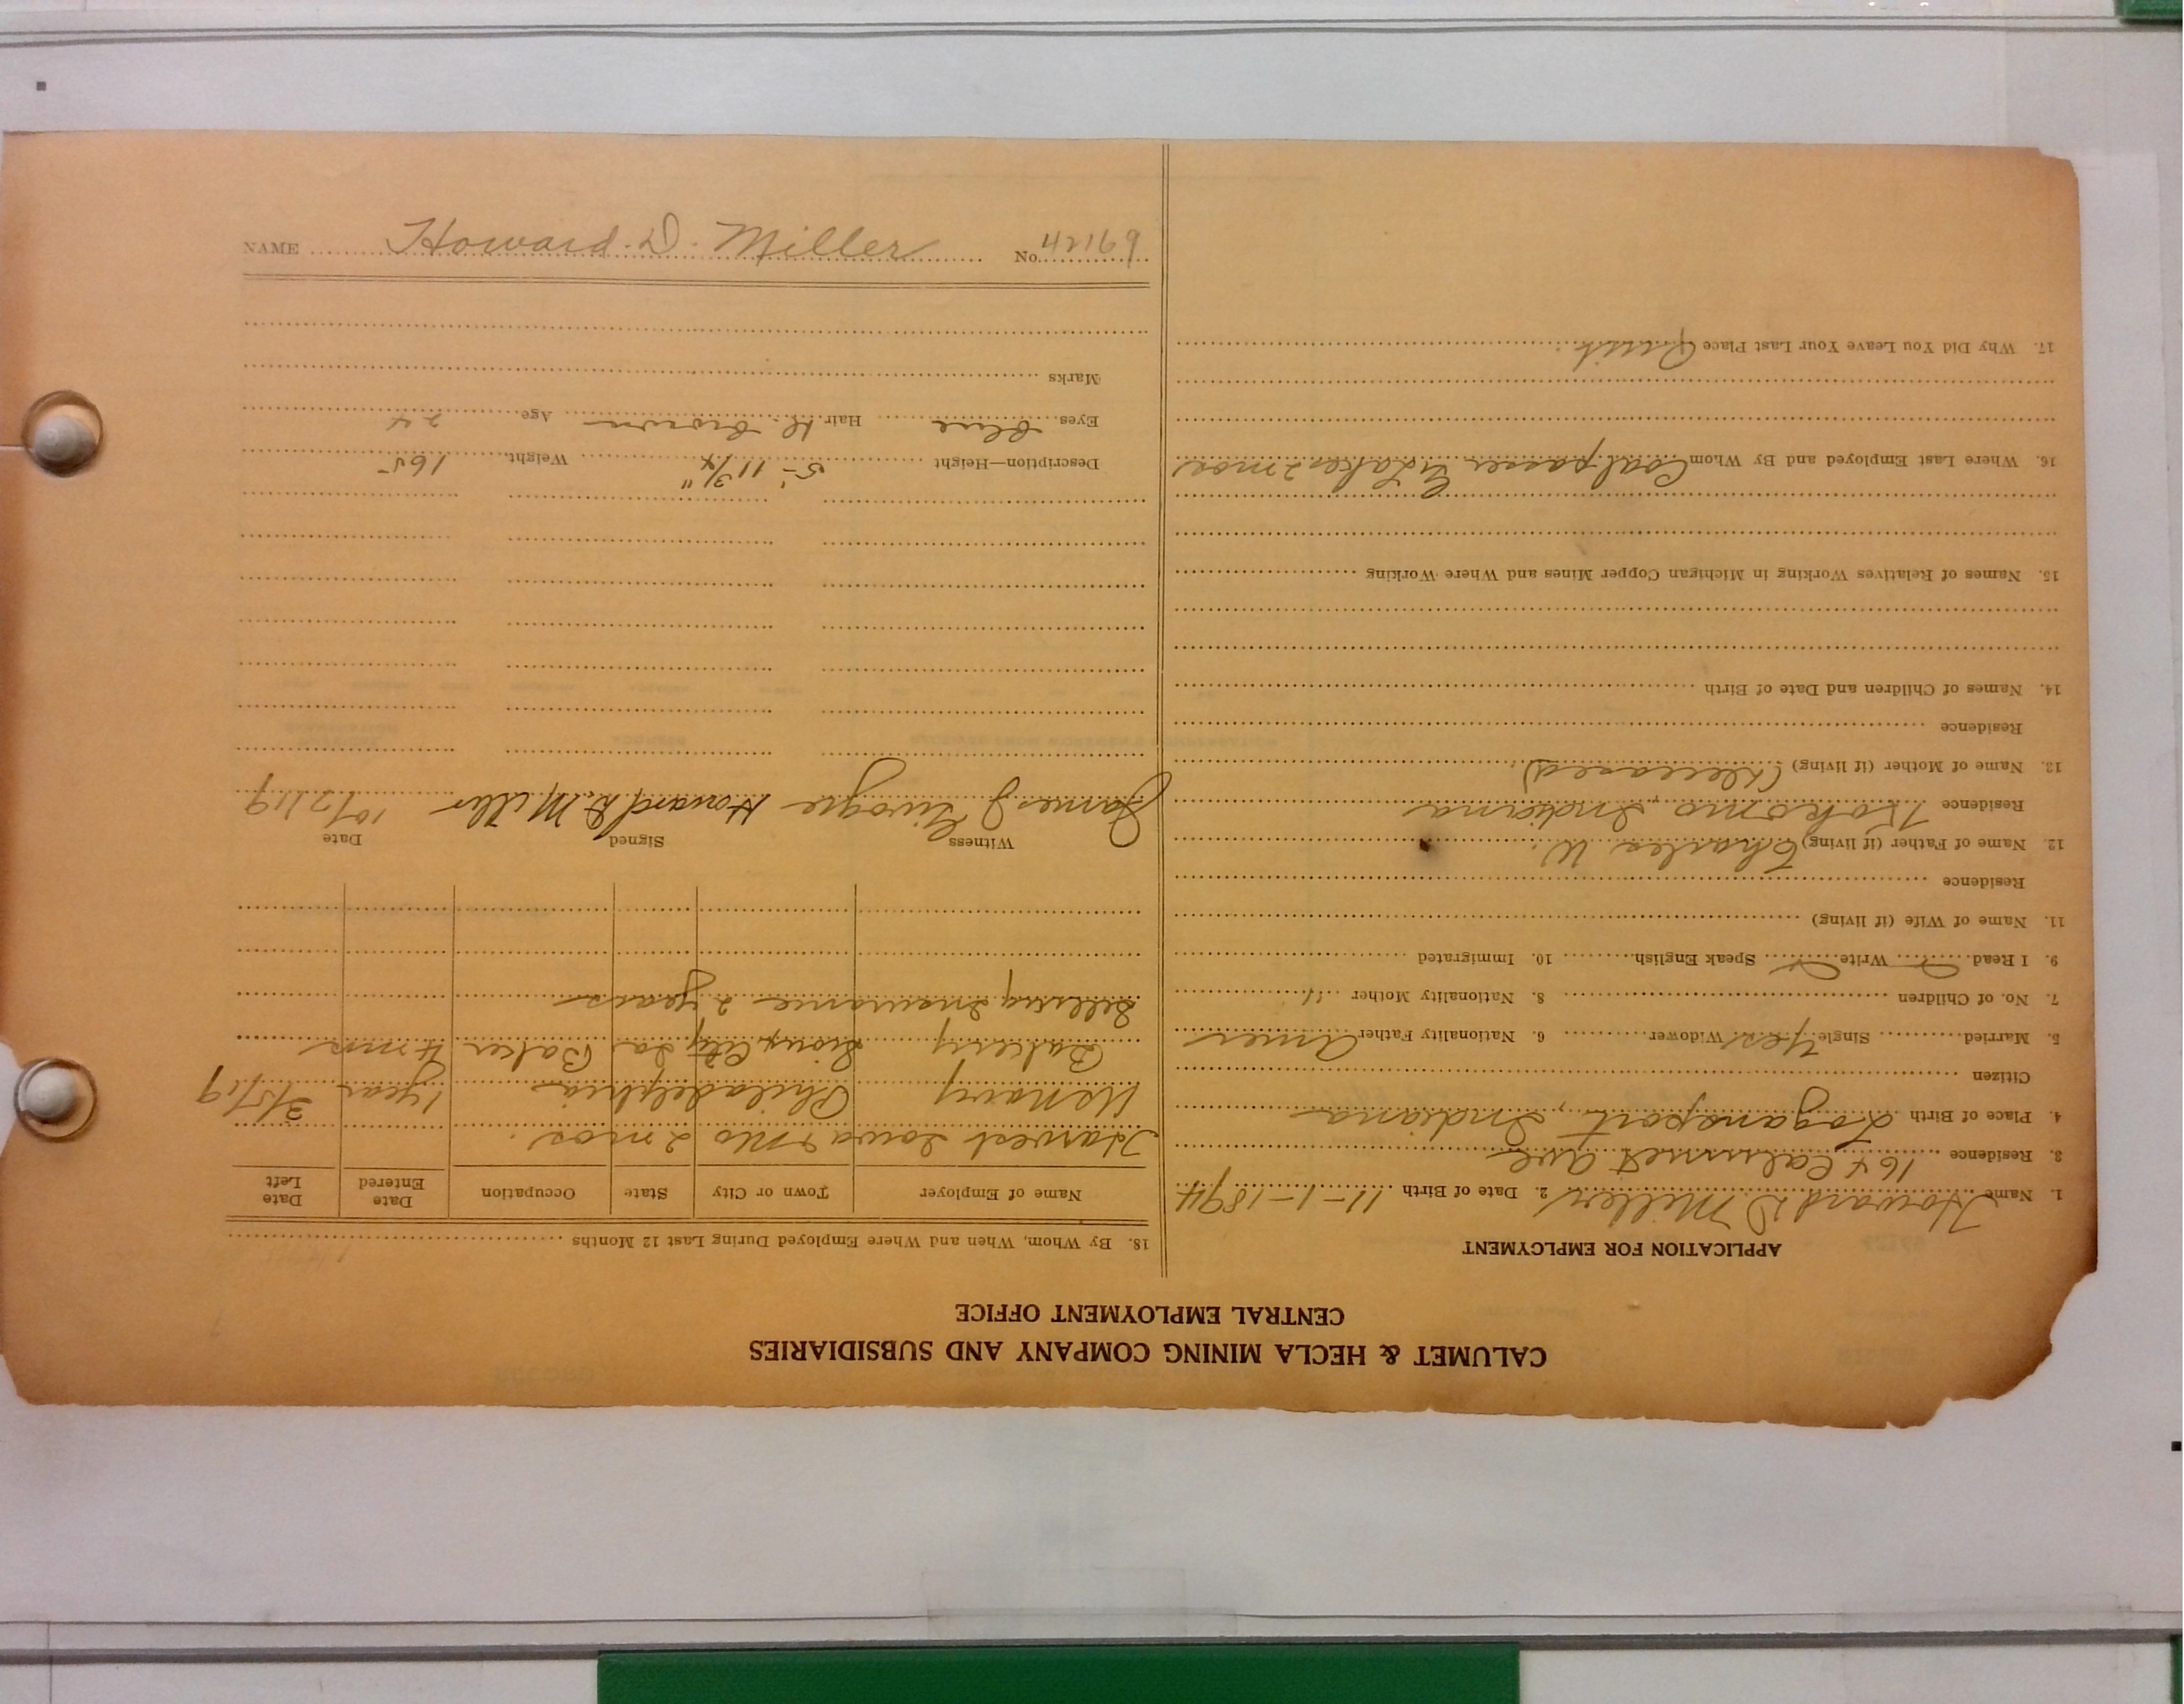 CALUMET & HECLA MINING COMPANY AND SUBSIDIARIES
CENTRAL EMPLOYMENT OFFICE
APPLICATION FOR EMPLOYMENT
1. Name Howard D Miller 2. Date of Birth 11-1-1894
3. Residence 164 Calumet Ave
4. Place of Birth Logansport, Indiana
Citizen
5. Married Single Yes Widower 6. Nationality Father Amer
7. No. of Children 8. Nationality Mother "
9. I Read Write Speak English 10. Immigrated
11. Name of Wife (if living)
Residence
12. Name of Father (if living) Charles W.
Residence Kokomo, Indiana
13. Name of Mother (if living) (Deceased)
Residence
14. Names of Children and Date of Birth
15. Names of Relatives Working in Michigan Copper Mines and Where Working
16. Where Last Employed and By Whom Coal passer Lakes 2 mos
17. Why Did You Leave Your Last Place Quit
18. By Whom, When and Where Employed During Last 12 Months
Name of Employer Town or City State Occupation Date Entered Date Left
Harvest Iowa & Mo 2 mos.
US Navy Philadelphia 1 year 3/5/19
Bakery Sioux City Ia Baker 4 mos
Selling Insurance 2 years
Witness Signed Date
James J Howard D. Miller 10/2/19
Description—Height 5-' 11 3/4" Weight 165
Eyes Blue Hair D. Brown Age 24
Marks
NAME Howard D. Miller No. 42169